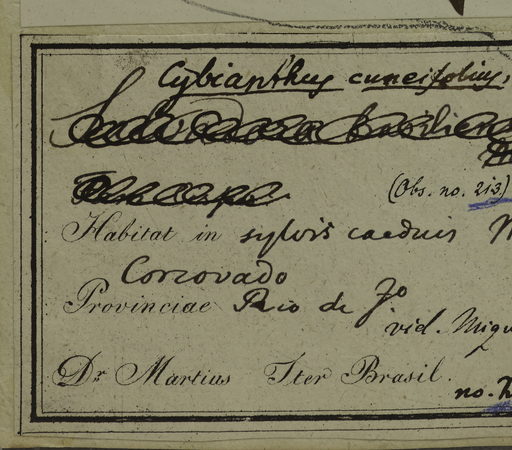 Cybianthus cuneifolius,
(Obs. no. 213)
Habitat in sylvis caeduis
Corcovado
Provinciae Rio de Jo
vid. Miqu
Dr. Martius Iter Brasil.
no.